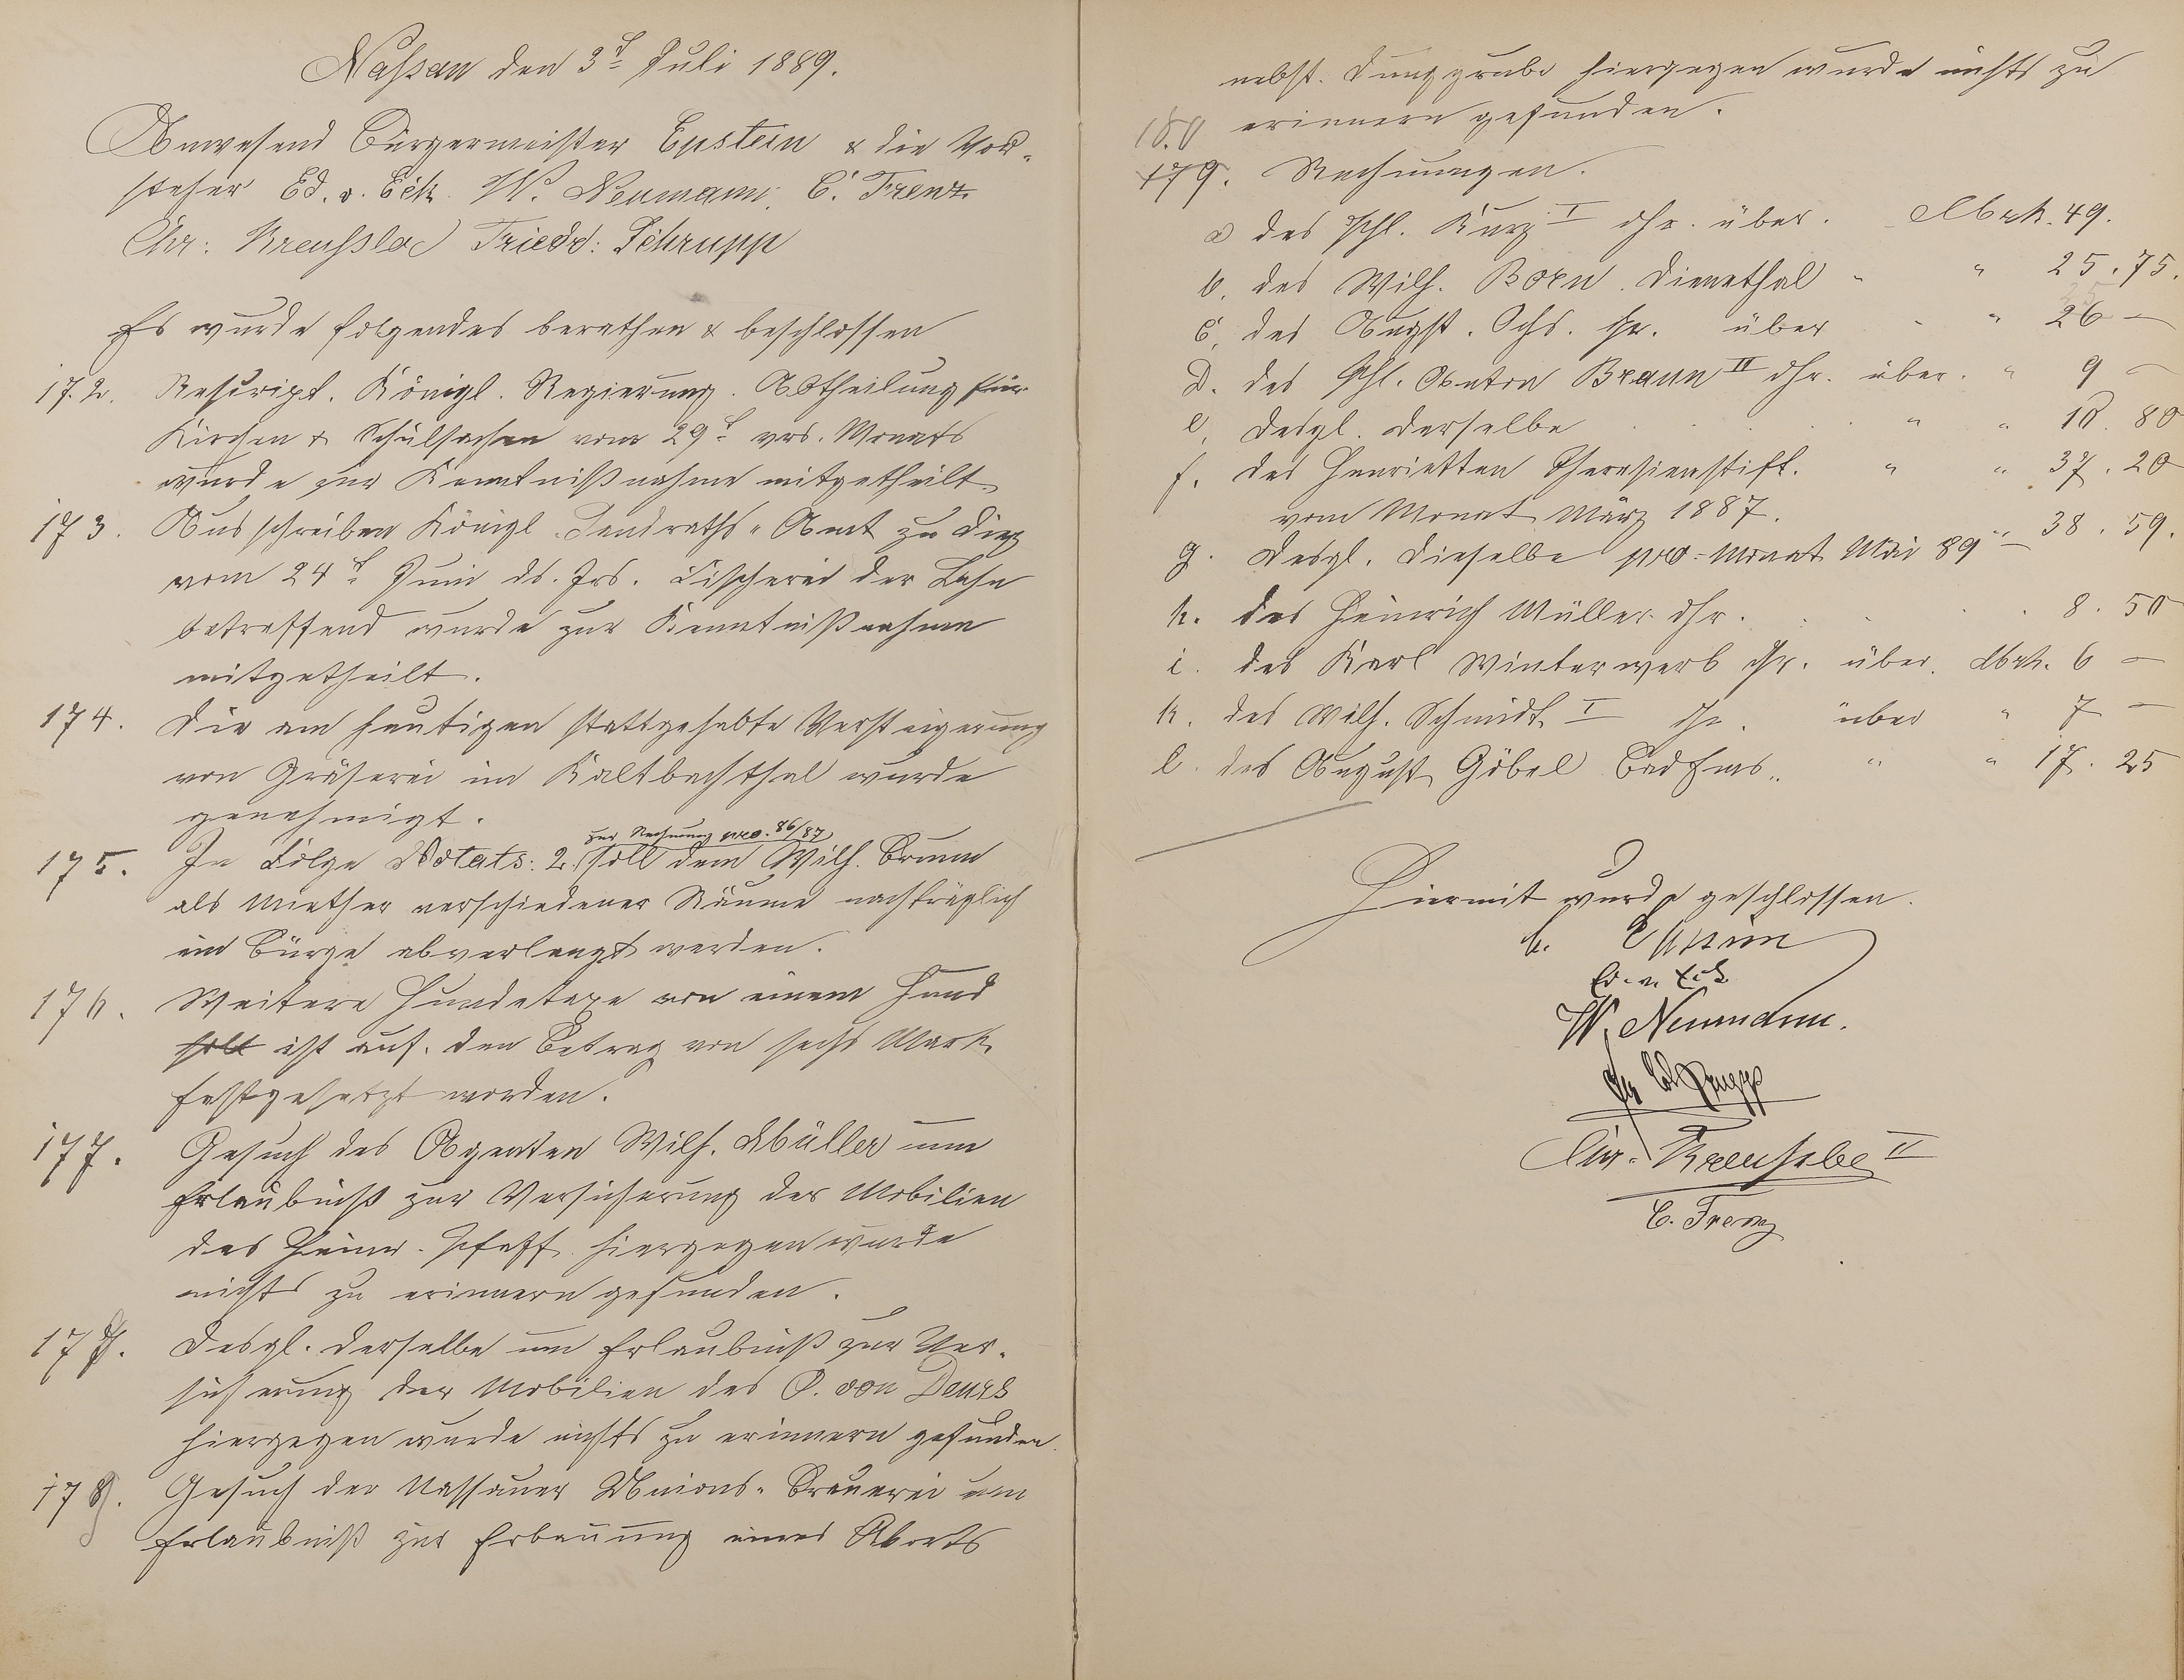 Nassau den 3t Juli 1889.
Anwesend Bürgermeister Epstein & die Vor-
steher Ed. v. Eck. W. Neumann, C. Frenz
Chr: Kreussler Friedr: Schrupp
Es wurde folgendes berathen & beschlossen
172. Rescript. Königl. Regierung. Abtheilung für
Kirchen & Schulsachen vom 29t vrs. Monats
wurde zur Kenntnißnahme mitgetheilt
173. Ausschreiben Königl. Landraths-Amt zu Diez
vom 24t Juni ds. Jrs. Fischerei der Lahn
betreffend wurde zur Kenntnißnahme
mitgetheilt.
174. Die am heutigen stattgehabte Versteigerung
von Gräserei im Kaltbachthal wurde
genehmigt.
zur Rechnung pro. 86/87
175. In Folge Notats. 2. soll dem Wilh. Bruns
als Miether verschiedener Räume nachträglich
ein Bürge abverlangt werden.
176. Weitere Hundetaxe von einem Hund
soll ist auf den Betrag von sechs Mark
festgesetzt worden.
177. Gesuch des Agenten Wilh. Müller um
Erlaubniß zur Versicherung der Mobilien
des Heinr. Pfaff. hiergegen wurde
nichts zu erinnern gefunden.
178. Desgl. derselbe um Erlaubniß zur Ver-
sicherung der Mobilien des O. von
hiergegen wurde nichts zu erinnern gefunden.
179. Gesuch der Nassauer Unions-Brauerei um
Erlaubniß zur Erbauung eines Aborts
nebst. Dunggrube hiergegen wurde nichts zu
erinnern gefunden.
180
179. Rechnungen.
a des Phl. Kurz I dhr. über. Mrk. 49.
b. des Wilh. Born. Dienethal " " 25.75.
c. des August. Ochs. hr. über " 26 —
d. des Phl. Anton Braun II dhr. über. " 9 —
e. desgl. derselbe " " 18. 80
f. des Henrietten Theresienstift. " " 37.20
vom Monat März 1887.
g. desgl. dieselbe pro. Monat Mai 89 " 38.59.
h. des Heinrich Müller dhr. 8.50
i. des Karl Winterwerb hr. über. Mrk. 6 —
k. des Wilh. Schmidt I hr. über " 7 —
l. des August Göbel Bad Ems " " 17. 25
Hiermit wurde geschlossen.
Epstein
Ed. v. Eck
W. Neumann.
Chr. Kreussler II
C. Frenz